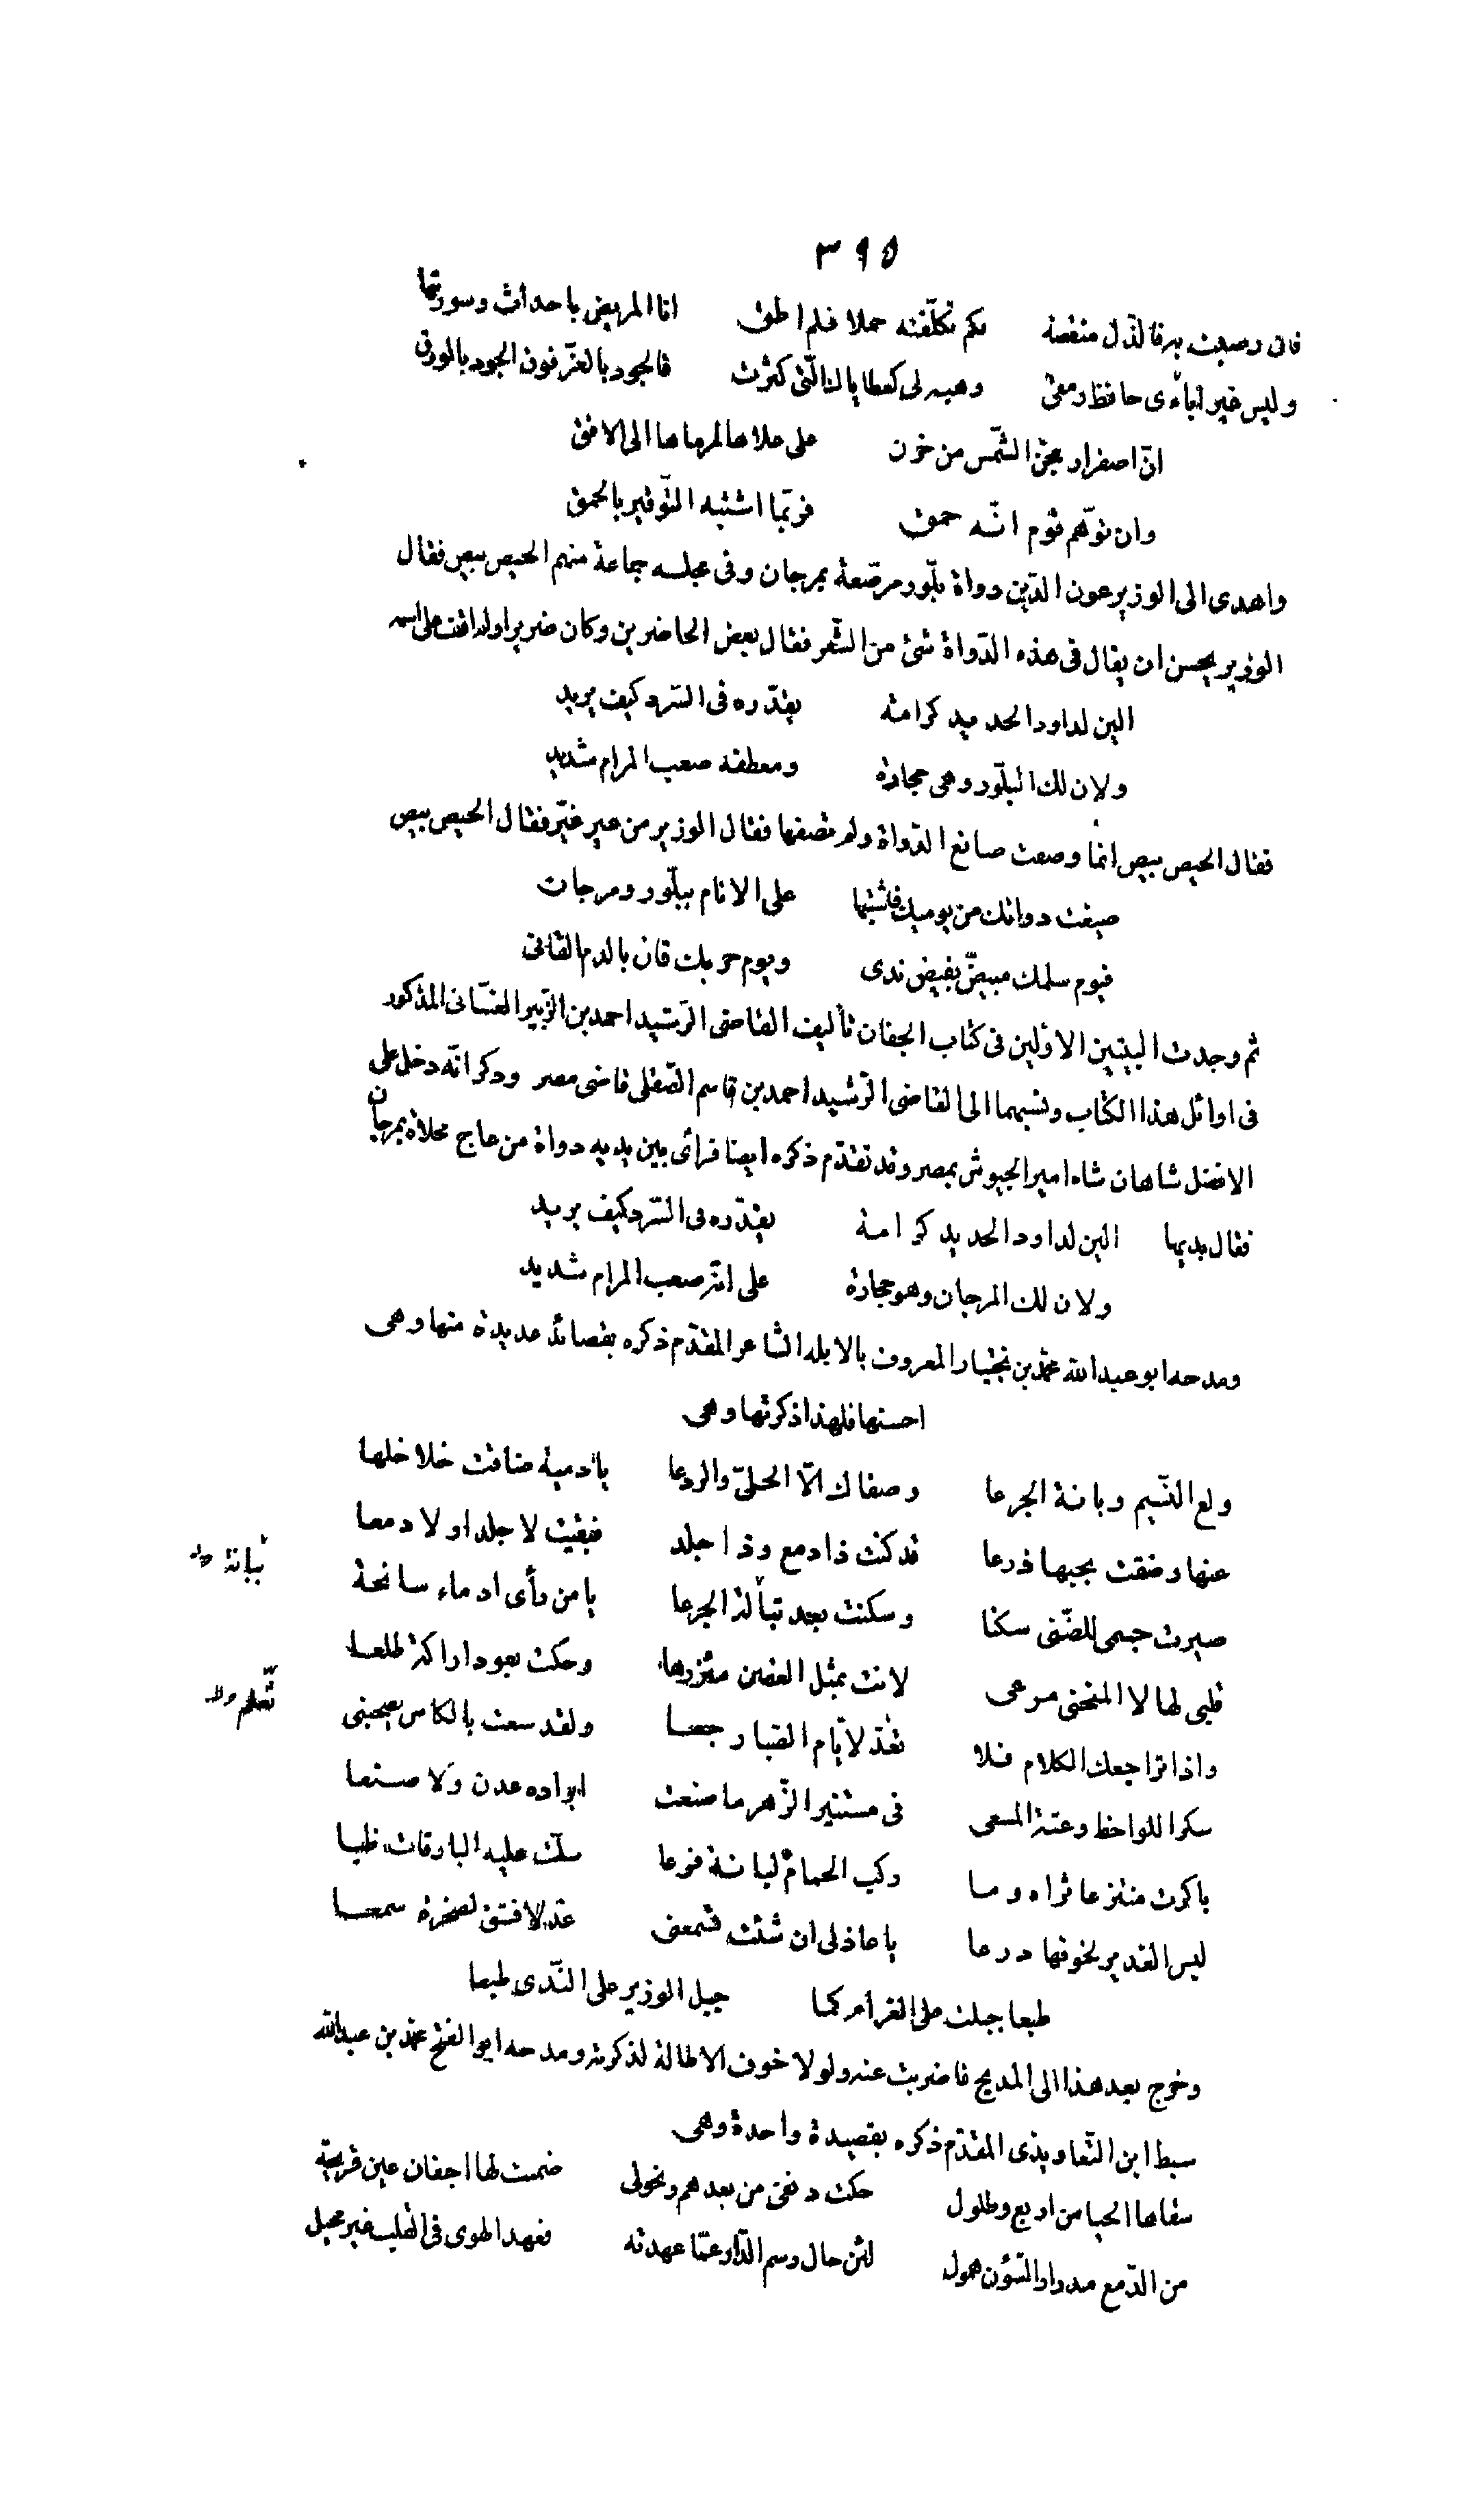 ٣٩٥
فانى رضيت بهر فالذل منقصة فكم تكلّفته حملا فلم اطق انا المريض باحداث وسورتها
وليس غير اباءى حافظ رمقى وهبه لى كعطاياك التى كثرت فالجود بالعزّ فوق الجود بالورق
انّ اصفرار مجنّ الشّمس من حزن على علاها لمرماها الى الافق
وان توهّم قوم انّه حمق فربّما اشتبه التّوقير بالحمق
واهدى الى الوزير عون الدّين دواة بلّور مرصّعة بمرجان وفى مجلسه جماعة منهم الحيص بيص فقال
الوزير يحسن ان يقال فى هذه الدّواة شئ من الشّعر فقال بعض الحاضرين وكان ضريرا ولم اقف على اسمه
الين لداود الحديد كرامة يقدّره فى السّرد كيف يريد
ولان لك البلّور وهى حجارة ومعطفه صعب المرام شديد
فقال الحيص بيص انّما وصفت صانع الدّواة ولم تصفها فقال الوزير من عير غيّر فقال الحيص بيص
صيغت دواتك من يوميك فاشتبها على الانام ببلّور ومرجان
فيوم سلمك مبيضّ بفيض ندى ويوم حربك قان بالدم القانى
ثم وجدت البيتين الاوّلين فى كتاب الجنان تأليف القاضى الرّشيد احمد بن الزّبير الغسّانى المذكور
فى اوائل هذا الكتاب ونسبهما الى القاضى الرّشيد احمد بن قاسم الصّقلى قاضى مصر وذكر انّه دخل على
الافضل شاهان شاه امير الجيوش بمصر وقد تقدّم ذكره ايضا فرأى بين يديه دواة من عاج محلاة بمرجان
فقال بديها الين لداود الحديد كرامة يقدّره فى السّرد كيف يريد
ولان لك المرجان وهو حجارة على انّه صعب المرام شديد
ومدحه ابو عبد الله محمّد بن بختيار المعروف بالابله الشاعر المقدّم ذكره بقصائد عديدة منها وهى
احسنها فلهذا ذكرتها وهى
ولع النّسيم وبانة الجرعا وصفاك الّا الحلىّ والردعا يا دمية ضاقت خلاخلها
عنها وضقت بحبها ذرعا قد كنت ذا دمع وذا جلد فبقيت لا جلدا ولا دمعا
نباتة
صيرت جسمى للضّنى سكنا وسكنت بعد تبالة الجرعا يا من رأى ادماء سانحة
قلبى لها لا المنحنى مرعى لانت بمثل الغصن مئزرها وحكت بعود اراكة طلعا
واذا تراجعك الكلام فلا تعد لايّام الصّبا رجعا ولقد سعت بالكاس يصحبنى
سكرا للواحظ وعتة المسعى فى مستنير الزّهر ما صنعت ابراده عدن ولا صنعا
باكرت منتزعا ثراه وما ركب الحمام لبانة فرعا سلّت عليه البارقات ظبا
لبس الغدير لخوفها درعا يا عاذلى ان شئت تسمعنى عذلا فشق لصخرة سمعا
طبعا جبلت على الغرام كما جبل الوزير على النّدى طبعا
وخرج بعد هذا الى المديح فاضربت عنه ولولا خوف الاطالة لذكرته ومدحه ابو الفتح محمّد بن عبد الله
سبط ابن التّعاويذى المقدّم ذكره بقصيدة واحدة وهى
سقاها الحيا من اربع وطلول حكت دنفى من بعدهم ونحولى ضمنت لها اجفان عين قريحة
من الدّمع مدرار الشّؤن همول لئن حال رسم الدّار عمّا عهدته فعهد الهوى فى القلب غير محيل